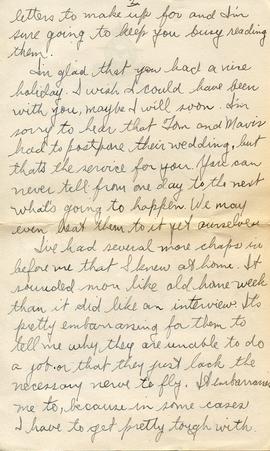 letters to make up for and I'm
sure going to keep you busy reading
them.
I'm glad that you had a nice
holiday. I wish I could have been
with you, maybe I will soon. I'm
sorry to hear that Tom and Mavis
had to postpone their wedding, but
thats the service for you. You can
never tell from one day to the next
what's going to happen. We may
even beat them to it yet ourselves.
I've had several more chaps in
before me that I knew at home. It
sounded more like old home week
than it did like an interview. Its
pretty embarrassing for them to
tell me why they are unable to do
a job or that they just lack the
necessary nerve to fly. It embarrasses
me to, because in some cases
I have to get pretty tough with.